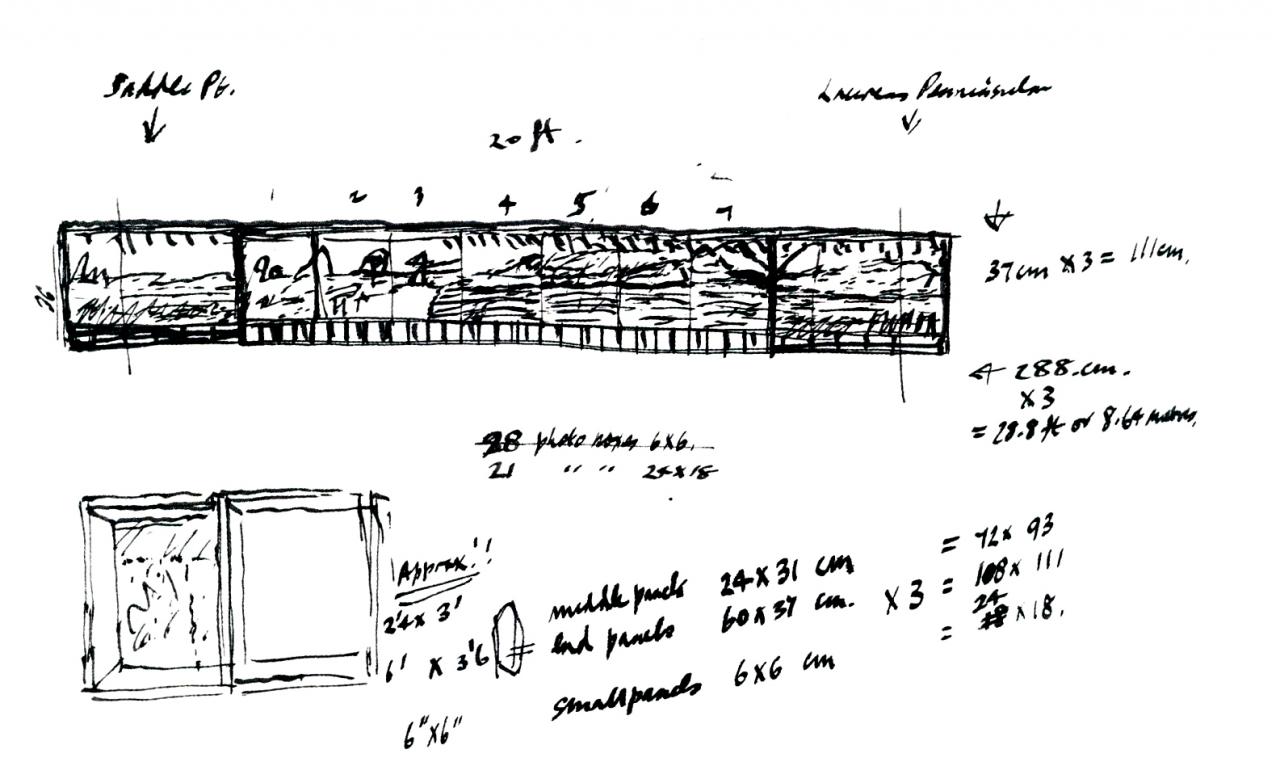 Saddle Pt.
Laurens Peninsular
20 ft.
1 2 3 4 5 6 7
37cm x3 = 111cm.
288.cm.
x3
= 28.8 ft or 8.64 metres.
28 photo boxes 6x6.
21 " " 24x18
Approx!!
2'4 x 3'
6' x 3'6
6"x6"
middle panels 24x31 cm
end panels 60x37 cm.
small panels 6x6 cm
x3
= 72x 93
= 108x 111
= 24 x18.